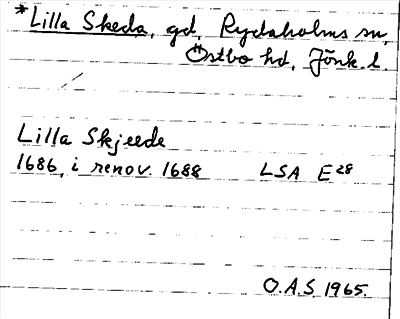 *Lilla Skeda, gd, Rydaholms sn,
Östbo hd, Jönk. l.
Lilla Skjeede
1686, i renov. 1688 LSA E28
O.A.S. 1965.